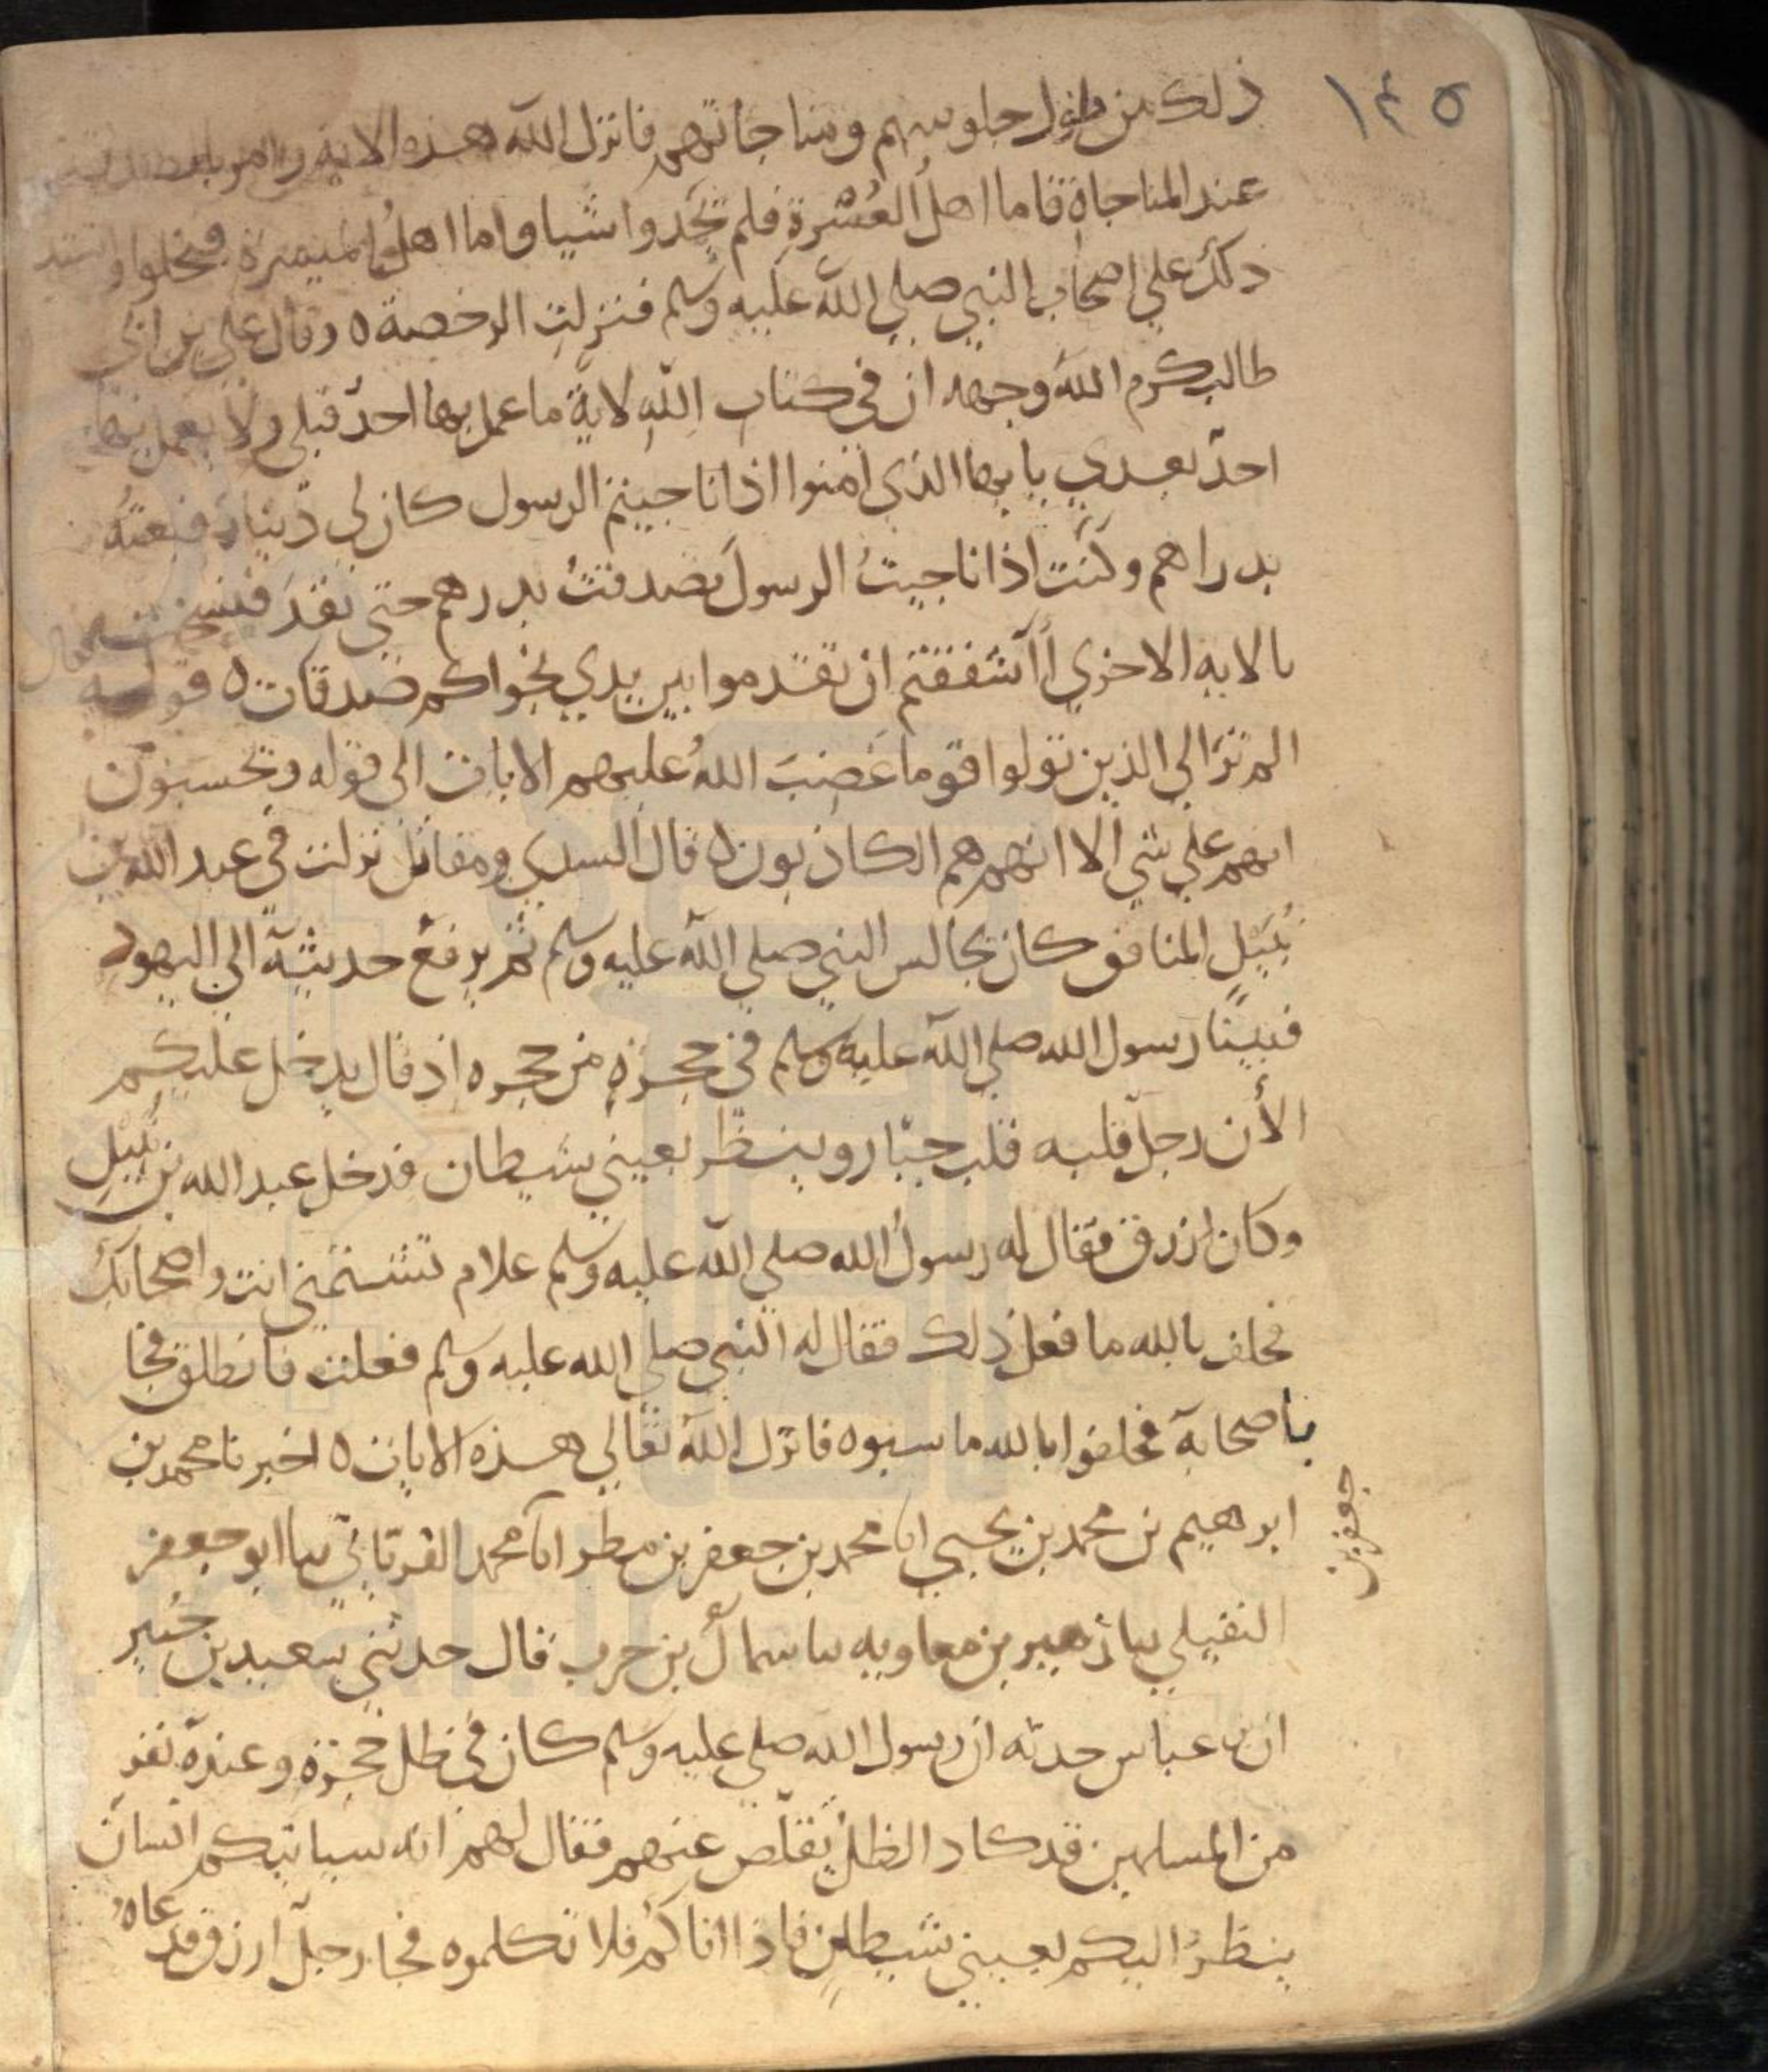 ١٤٥
ذلك من طول جلوسهم ومناجاتهم فانزل الله هذه الاية وامر بالصدقة
عند المناجاة فاما اهل العسرة فلم يجدوا شيا واما اهل الميسرة فبخلوا واشتد
ذلك علي اصحاب النبي صلي الله عليه وسلم فنزلت الرخصة ه وقال علي بن ابي
طالب كرم الله وجهه ان في كتاب الله لاية ما عمل بها احد قبلي ولا يعمل بها
احد بعدي يا ايها الذي امنوا اذا ناجيتم الرسول كان لي دينار فبعته
بدراهم وكنت اذا ناجيت الرسول تصدقت بدرهم حتي نفد فنسخت
بالاية الاخري أأشفقتم ان تقدموا بين يدي نجواكم صدقات ه قوله
الم تر الي الذين تولوا قوما غضب الله عليهم الايات الى قوله ويحسبون
انهم علي شي الا انهم هم الكاذبون ه قال السدي ومقاتل نزلت في عبد الله بن
نبيل المنافق كان يجالس النبي صلي الله عليه وسلم ثم يرفع حديثه الي اليهود
فبينا رسول الله صلي الله عليه وسلم في حجرة من حجره اذ قال يدخل عليكم
الأن رجل قلبه قلب جبار وينظر بعيني شيطان فدخل عبد الله بن نبيل
وكان ازرق فقال له رسول الله صلي الله عليه وسلم علام تشتمني انت واصحابك
فحلف بالله ما فعل ذلك فقال له النبي صلي الله عليه وسلم فعلت فانطلق فجا
باصحابه فحلفوا بالله ما سبوه فانزل الله تعالي هذه الايات ه اخبرنا محمد بن
جعفر بن
ابرهيم بن محمد بن يحيي انا محمد بن جعفر بن مطر انا محمد الفريابي نا ابو جعفر
النفيلي نا زهير بن معاويه نا سماك بن حرب قال حدثني سعيد بن جبير
ان بن عباس حدثه ان رسول الله صلي عليه وسلم كان في ظل حجرة وعنده نفر
من المسلمين قد كاد الظل يقلص عنهم فقال لهم انه سياتيكم انسان
ينظر اليكم بعيني شيطان فاذا اتاكم فلا تكلموه فجا رجل ازرق فدعاه